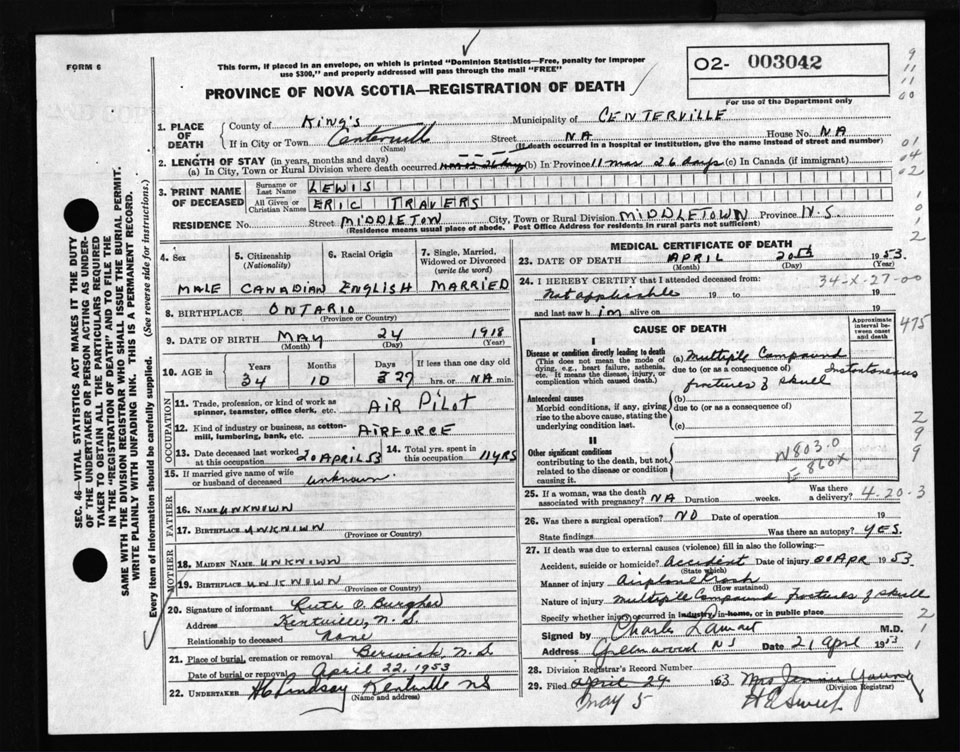 FORM 6
This form, if placed in an envelope, on which is printed "Dominion Statistics—Free, penalty for improper
use $300," and properly addressed will pass through the mail "FREE"
PROVINCE OF NOVA SCOTIA—REGISTRATION OF DEATH
O2- 003042
For use of the Department only
1. PLACE OF DEATH
County of King's Municipality of CENTERVILLE
If in City or Town Centerville Street NA House No. NA
(Name) (If death occurred in a hospital or institution, give the name instead of street and number)
2. LENGTH OF STAY (in years, months and days)
(a) In City, Town or Rural Division where death occurred (b) In Province 11 mos 26 days (c) In Canada (if immigrant)
3. PRINT NAME OF DECEASED
Surname or Last Name LEWIS
All Given or Christian Names ERIC TRAVERS
RESIDENCE No. Street MIDDLETON City, Town or Rural Division MIDDLETOWN Province N.S.
(Residence means usual place of abode. Post Office Address for residents in rural parts not sufficient)
4. Sex
MALE
5. Citizenship
(Nationality)
CANADIAN
6. Racial Origin
ENGLISH
7. Single, Married,
Widowed or Divorced
(write the word)
MARRIED
8. BIRTHPLACE ONTARIO
(Province or Country)
9. DATE OF BIRTH MAY 24 1918
(Month) (Day) (Year)
10. AGE in Years Months Days If less than one day old
34 10 27 hrs. or NA min.
OCCUPATION
11. Trade, profession, or kind of work as
spinner, teamster, office clerk, etc. AIR PILOT
12. Kind of industry or business, as cotton-
mill, lumbering, bank, etc. AIRFORCE
13. Date deceased last worked
at this occupation 20 APRIL 53
14. Total yrs. spent in
this occupation 11 YRS
15. If married give name of wife
or husband of deceased unknown
FATHER
16. Name UNKNOWN
17. Birthplace UNKNOWN
(Province or Country)
MOTHER
18. MAIDEN NAME UNKNOWN
19. Birthplace UNKNOWN
(Province or Country)
20. Signature of informant Ruth O. Burgher
Address Kentville, N. S.
Relationship to deceased None
21. Place of burial, cremation or removal Berwick, N.S
Date of burial or removal April 22, 1953
22. UNDERTAKER H C Lindsay Kentville NS
(Name and address)
MEDICAL CERTIFICATE OF DEATH
23. DATE OF DEATH APRIL 20th 1953
(Month) (Day) (Year)
24. I HEREBY CERTIFY that I attended deceased from: 34-X-27-00
Not applicable 19 to 19
and last saw him alive on 19
CAUSE OF DEATH
Approximate
interval be-
tween onset
and death
I
Disease or condition directly leading to death
(This does not mean the mode of
dying, e.g., heart failure, asthenia,
etc. It means the disease, injury, or
complication which caused death.)
(a) Multiple Compound
due to (or as a consequence of) Instantaneous
fractures of skull
Antecedent causes
Morbid conditions, if any, giving
rise to the above cause, stating the
underlying condition last.
(b)
due to (or as a consequence of)
(c)
II
Other significant conditions
contributing to the death, but not
related to the disease or condition
causing it.
N803.0
E 860X
25. If a woman, was the death
associated with pregnancy? NA Duration weeks. Was there
a delivery? 4-20-3
26. Was there a surgical operation? NO Date of operation 19
State findings Was there an autopsy? YES.
27. If death was due to external causes (violence) fill in also the following:
Accident, suicide or homicide? Accident Date of injury 20 APR 1953.
(State which)
Manner of injury Airplane Crash
(How sustained)
Nature of injury Multiple Compound fractures of skull
Specify whether injury occurred in industry, in home, or in public place
Signed by Charles M.D.
Address Greenwood NS Date 21 Apr 1953
28. Division Registrar's Record Number
29. Filed April 24 1953 Mrs Jennie Young
(Division Registrar)
May 5
SEC. 46—VITAL STATISTICS ACT MAKES IT THE DUTY
OF THE UNDERTAKER OR PERSON ACTING AS UNDER-
TAKER TO OBTAIN ALL THE PARTICULARS REQUIRED
IN THE "REGISTRATION OF DEATH" AND TO FILE THE
SAME WITH THE DIVISION REGISTRAR WHO SHALL ISSUE THE BURIAL PERMIT.
WRITE PLAINLY WITH UNFADING INK. THIS IS A PERMANENT RECORD.
Every item of information should be carefully supplied. (See reverse side for instructions.)
9
11
11
00
01
04
02
1
0
1
2
475
2
9
9
2
1
1